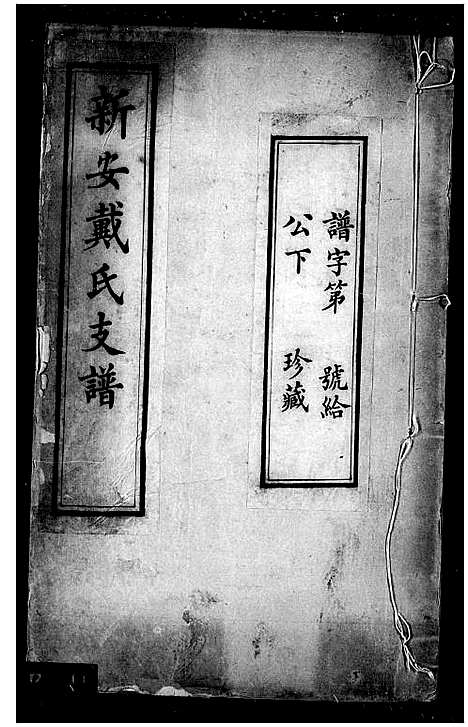 譜字第 號給
公下 珍藏
新安戴氏支譜